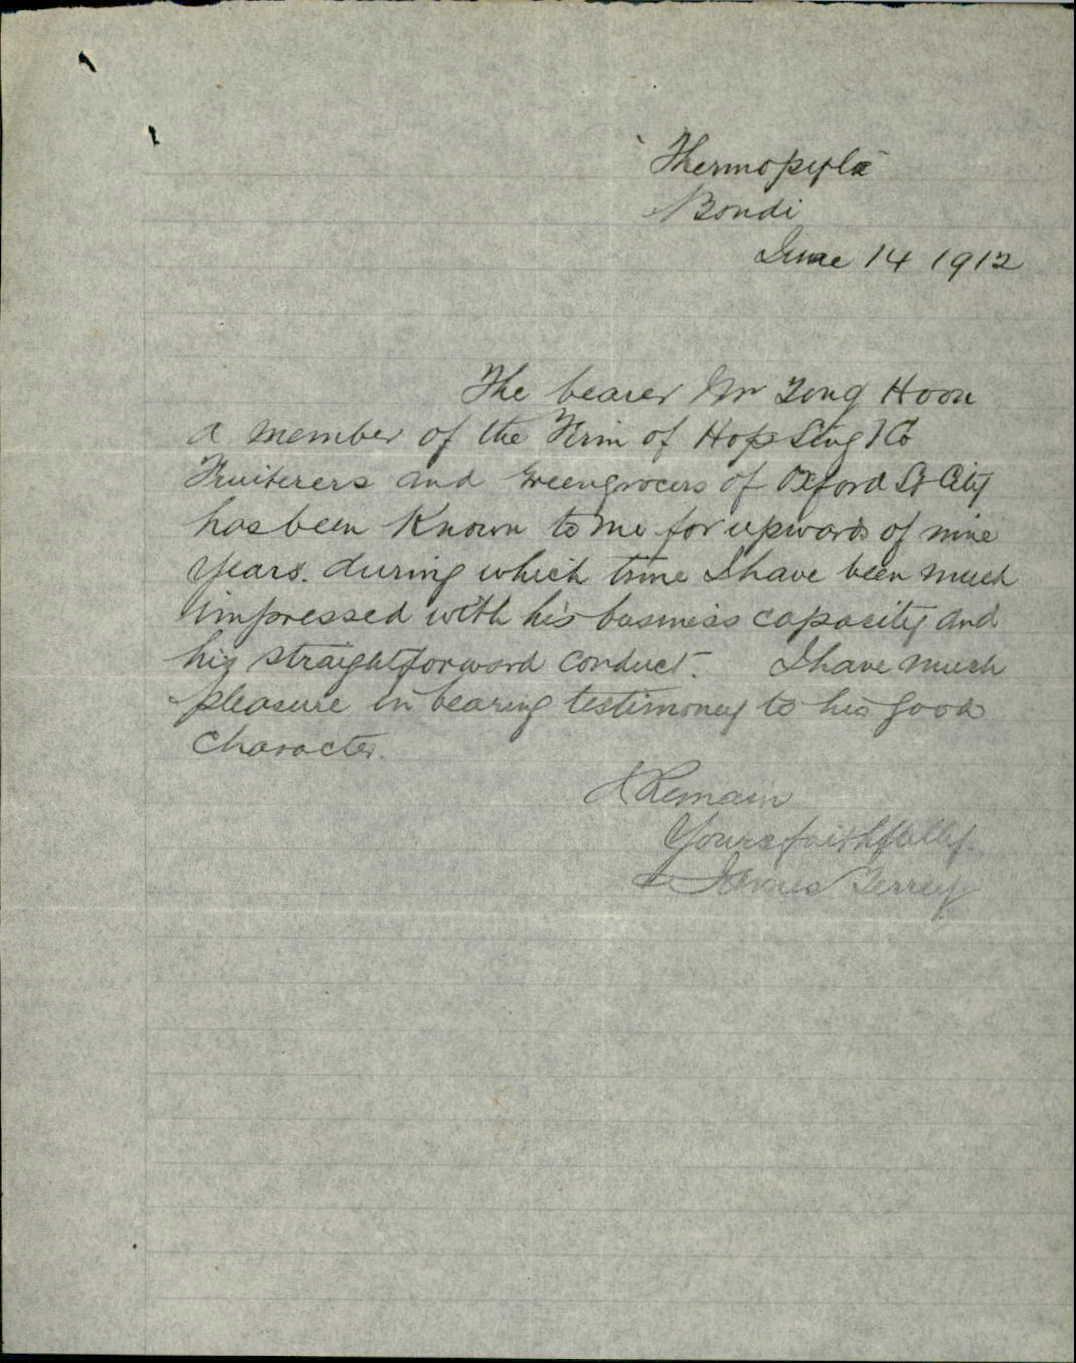 "Thermopylæ"
Bondi
June 14 1912
The bearer Mr Tong Hoon
a member of the Firm of Hop Sing & Co
Fruiterers and Greengrocers of Oxford St City
has been Known to me for upwards of nine
years. during which time I have been much
impressed with his business capacity and
his straightforward conduct. I have much
pleasure in bearing testimony to his good
character.
I Remain
Yours faithfully
James Terrey